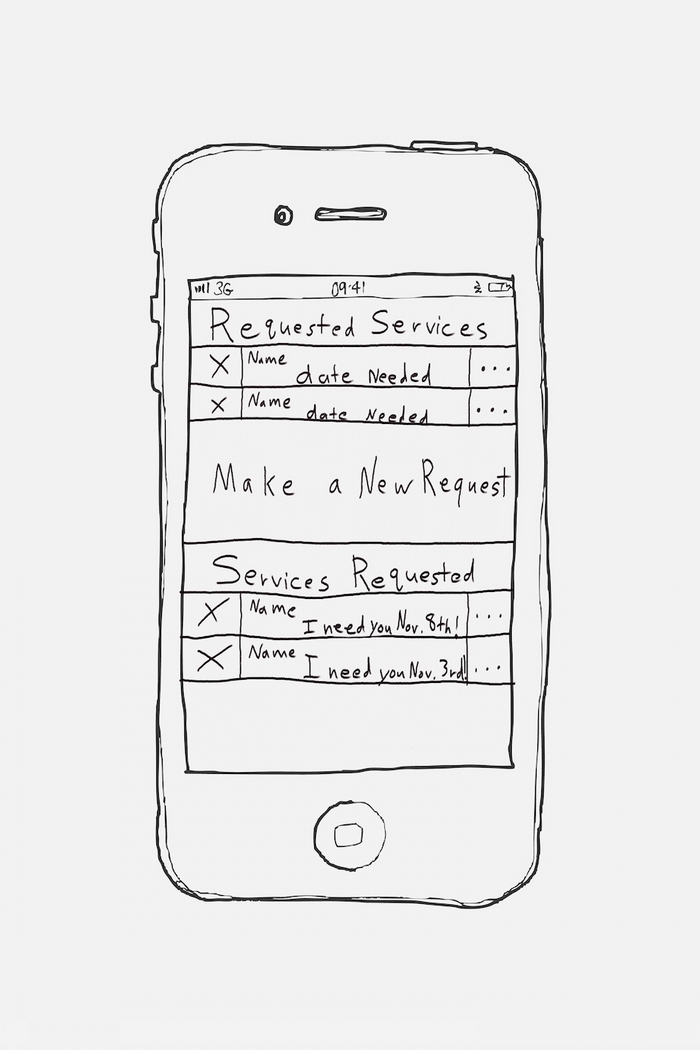 3G 09:41
Requested Services
X Name date Needed ...
X Name date Needed ...
Make a New Request
Services Requested
X Name I need you Nov. 8th! ...
X Name I need you Nov. 3rd! ...